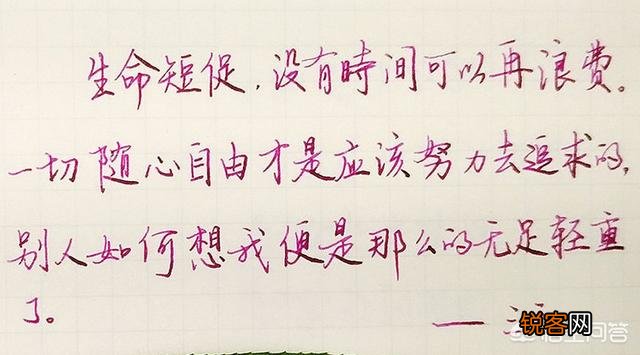 生命短促,没有時间可以再浪费。
一切随心自由才是应该努力去追求的,
别人如何想我便是那么的无足轻重
了。
锐客网
问答